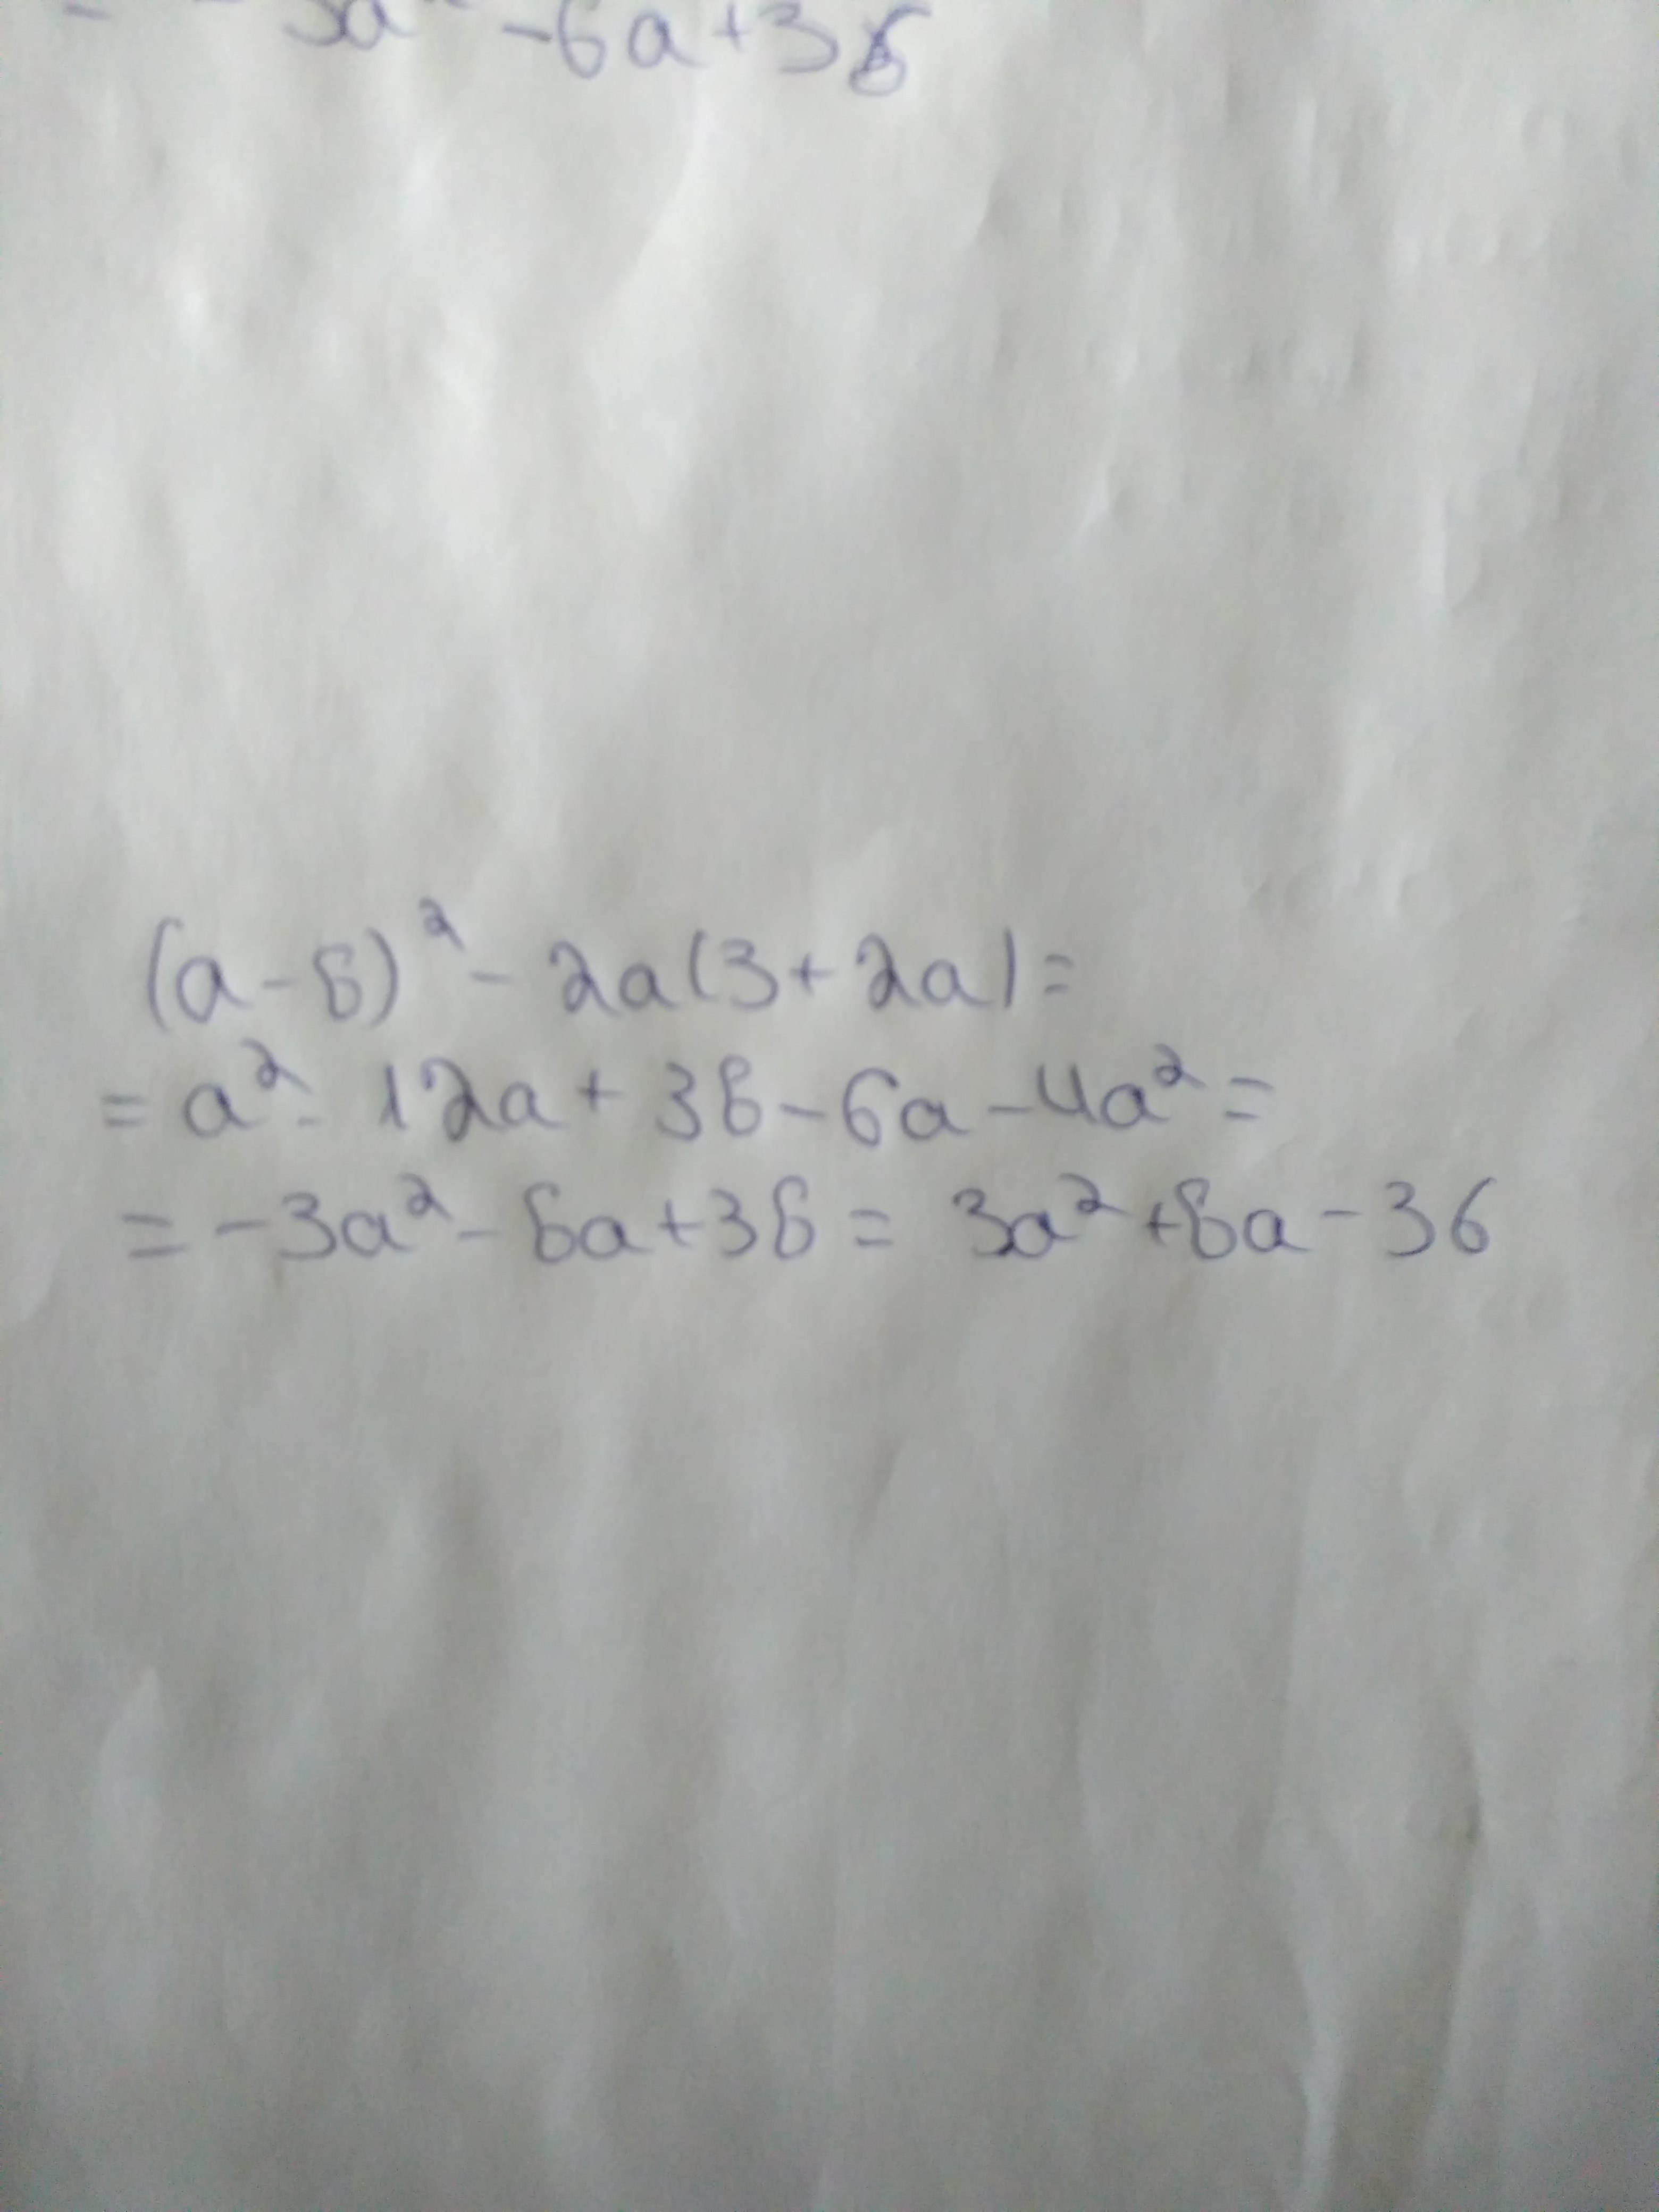 = - 3a² - 6a + 36
(a - 6)² - 2a(3 + 2a) =
= a² - 12a + 36 - 6a - 4a² =
= -3a² - 6a + 36 = 3a² + 6a - 36